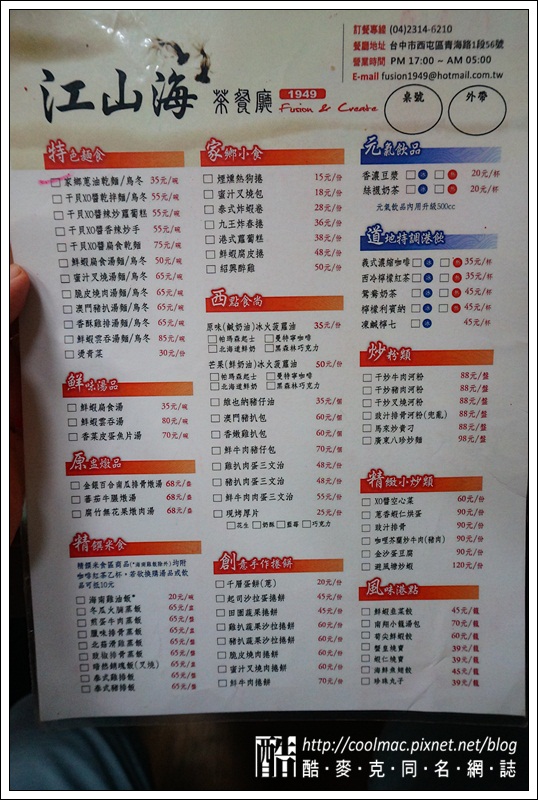 江山海 茶餐廳 1949
Fusion & Create
訂餐專線 (04)2314-6210
餐廳地址 台中市西屯區青海路1段56號
營業時間 PM 17:00 ~ AM 05:00
E-mail fusion1949@hotmail.com.tw
桌號
外帶
特色麵食
家鄉蔥油乾麵/烏冬 35元/碗
干貝XO醬乾拌麵/烏冬 55元/碗
干貝XO醬辣炒蘿蔔糕 55元/碗
干貝XO醬香辣炒手 55元/碗
干貝XO醬扁食乾麵 75元/碗
鮮蝦扁食湯麵/烏冬 50元/碗
蜜汁叉燒湯麵/烏冬 65元/碗
脆皮燒肉湯麵/烏冬 65元/碗
澳門豬扒湯麵/烏冬 65元/碗
香酥雞排湯麵/烏冬 65元/碗
鮮蝦雲吞湯麵/烏冬 85元/碗
燙青菜 30元/份
鮮味湯品
鮮蝦扁食湯 35元/碗
鮮蝦雲吞湯 80元/碗
香菜皮蛋魚片湯 70元/碗
原盅燉品
金銀百合南瓜排骨燉湯 68元/盅
蕃茄牛腩燉湯 68元/盅
腐竹無花果燉肉湯 68元/盅
精饌米食
精饌米食區商品(*海南雞飯除外)均附
咖啡紅茶乙杯，若欲換購湯品或飲
品可抵10元
海南雞油飯* 20元/碗
冬瓜火腩蒸飯 65元/盅
煎蛋牛肉蒸飯 65元/盅
臘味排骨蒸飯 65元/盅
北菇滑雞蒸飯 65元/盅
豉椒排骨蒸飯 65元/盅
暗然銷魂飯(叉燒) 65元/盤
泰式雞排飯 65元/盤
泰式豬排飯 65元/盤
家鄉小食
煙燻熱狗捲 15元/份
蜜汁叉燒包 18元/份
泰式炸蝦卷 28元/份
九王炸春捲 36元/份
港式蘿蔔糕 38元/份
鮮蝦腐皮捲 48元/份
紹興醉雞 50元/份
西點食尚
原味(鹹奶油)冰火菠蘿油 35元/份
帕瑪森起士 曼特寧咖啡
北海道鮮奶 黑森林巧克力
芒果(鮮奶油)冰火菠蘿油 50元/份
帕瑪森起士 曼特寧咖啡
北海道鮮奶 黑森林巧克力
維也納豬仔油 35元/個
澳門豬扒包 60元/個
香嫩雞扒包 60元/個
鮮牛肉豬仔包 70元/個
雞扒肉蛋三文治 48元/份
豬扒肉蛋三文治 48元/份
鮮牛肉肉蛋三文治 55元/份
現烤厚片 25元/份
花生 奶酥 藍莓 巧克力
創意手作捲餅
千層蛋餅(蔥) 20元/份
起司沙拉蛋捲餅 45元/份
田園蔬果捲餅 45元/份
雞扒蔬果沙拉捲餅 60元/份
豬扒蔬果沙拉捲餅 60元/份
脆皮燒肉捲餅 60元/份
蜜汁叉燒肉捲餅 60元/份
鮮牛肉捲餅 70元/份
元氣飲品
香濃豆漿 冰 熱 20元/杯
絲襪奶茶 冰 熱 20元/杯
元氣飲品內用升級500cc
道地特調港飲
義式濃縮咖啡 冰 熱 35元/杯
西冷檸檬紅茶 冰 熱 35元/杯
鴛鴦奶茶 冰 熱 45元/杯
檸檬利賓納 冰 熱 45元/杯
凍鹹檸七 冰 45元/杯
炒粉類
干炒牛肉河粉 88元/盤
干炒豬肉河粉 88元/盤
干炒叉燒河粉 88元/盤
豉汁排骨河粉(兜亂) 88元/盤
馬來炒貴刁 88元/盤
廣東八珍炒麵 98元/盤
精緻小炒類
XO醬空心菜 60元/份
蔥香蝦仁烘蛋 90元/份
豉汁排骨 90元/份
咖哩茶蘭炒牛肉(豬肉) 90元/份
金沙蛋豆腐 90元/份
避風塘炒蝦 120元/份
風味港點
鮮蝦韭菜餃 45元/籠
南翔小籠湯包 70元/籠
筍尖鮮蝦餃 60元/籠
蟹皇燒賣 39元/籠
蝦仁燒賣 39元/籠
海鮮魚翅餃 45元/籠
珍珠丸子 39元/籠
酷 http://coolmac.pixnet.net/blog
酷・麥・克・同・名・網・誌